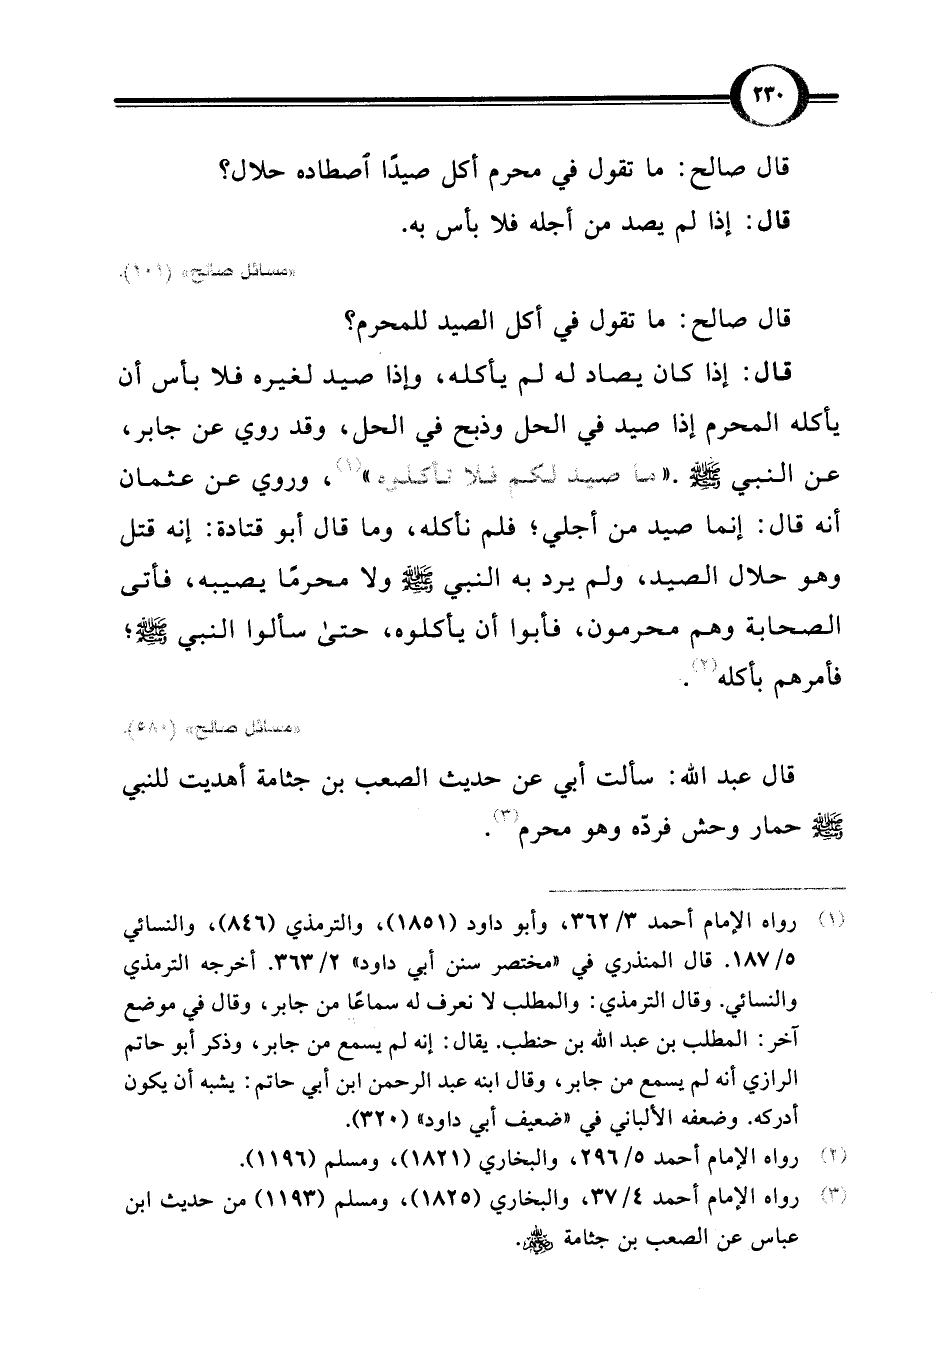 ٢٣٠
قال صالح: ما تقول في محرم أكل صيدًا ٱصطاده حلال؟
قال: إذا لم يصد من أجله فلا بأس به.
«مسائل صالح» (١٠١).
قال صالح: ما تقول في أكل الصيد للمحرم؟
قال: إذا كان يصاد له لم يأكله، وإذا صيد لغيره فلا بأس أن
يأكله المحرم إذا صيد في الحل وذبح في الحل، وقد روي عن جابر،
عن النبي ﷺ .«ما صيد لكم فلا تأكلوه»(١)، وروي عن عثمان
أنه قال: إنما صيد من أجلي؛ فلم نأكله، وما قال أبو قتادة: إنه قتل
وهو حلال الصيد، ولم يرد به النبي ﷺ ولا محرمًا يصيبه، فأتى
الصحابة وهم محرمون، فأبوا أن يأكلوه، حتىٰ سألوا النبي ﷺ؛
فأمرهم بأكله(٢).
«مسائل صالح» (٥٨٠).
قال عبد الله: سألت أبي عن حديث الصعب بن جثامة أهديت للنبي
ﷺ حمار وحش فردّه وهو محرم(٣).
(١) رواه الإمام أحمد ٣/ ٣٦٢، وأبو داود (١٨٥١)، والترمذي (٨٤٦)، والنسائي
٥/ ١٨٧. قال المنذري في «مختصر سنن أبي داود» ٢/ ٣٦٣. أخرجه الترمذي
والنسائي. وقال الترمذي: والمطلب لا نعرف له سماعًا من جابر، وقال في موضع
آخر: المطلب بن عبد الله بن حنطب. يقال: إنه لم يسمع من جابر، وذكر أبو حاتم
الرازي أنه لم يسمع من جابر، وقال ابنه عبد الرحمن ابن أبي حاتم: يشبه أن يكون
أدركه. وضعفه الألباني في «ضعيف أبي داود» (٣٢٠).
(٢) رواه الإمام أحمد ٥/ ٢٩٦، والبخاري (١٨٢١)، ومسلم (١١٩٦).
(٣) رواه الإمام أحمد ٤/ ٣٧، والبخاري (١٨٢٥)، ومسلم (١١٩٣) من حديث ابن
عباس عن الصعب بن جثامة ﵁.